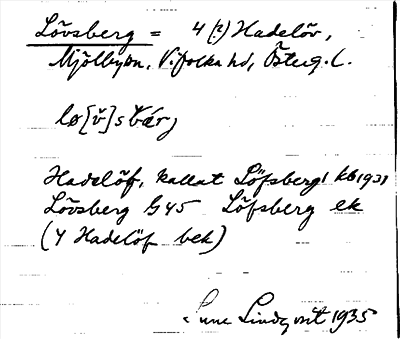 Lövsberg = 4 (?) Hadelöv,
Mjölbysn, Vifolka hd, Österg. l.
lø[v̆]sbær̨j
Hadelöf, kallat Löfsberg kb 1931
Lövsberg G 45 Löfsberg ek
(4 Hadelöf bek)
Sune Lindqvist 1935